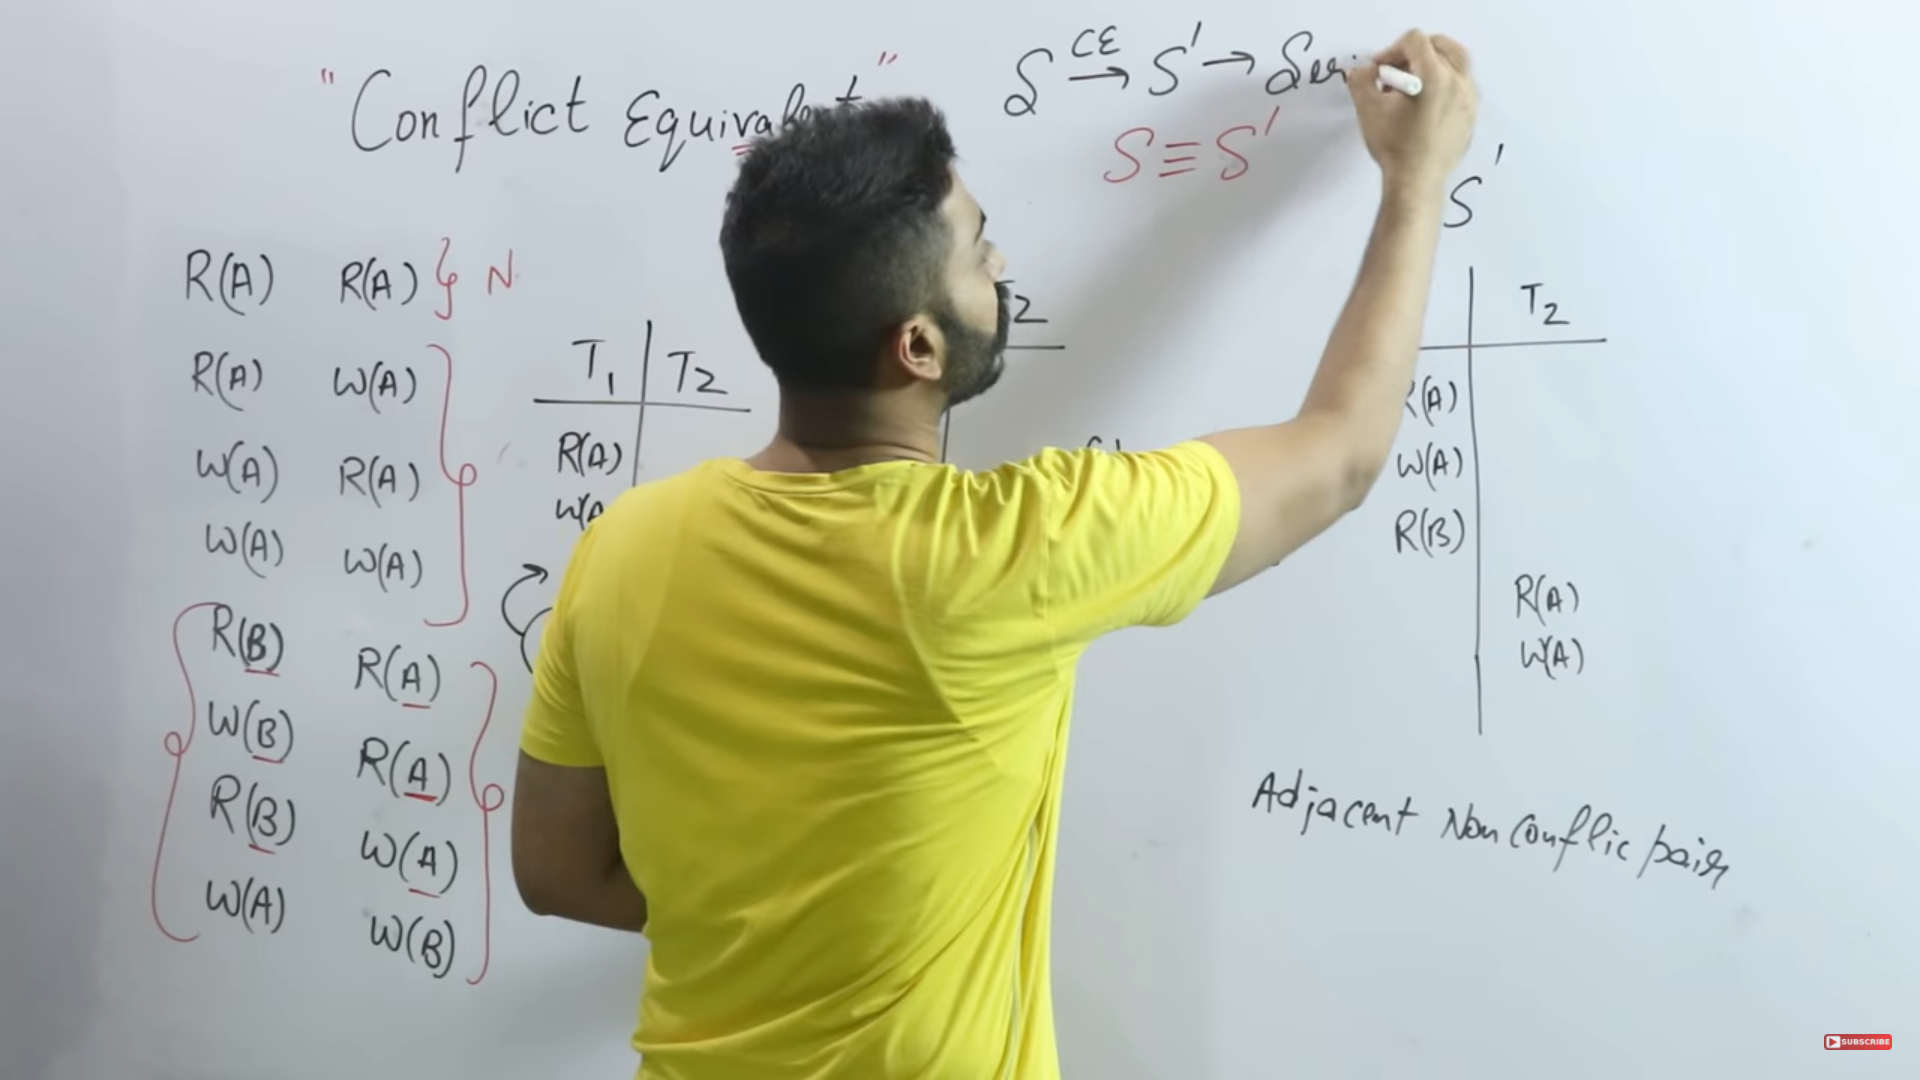 "Conflict Equivalent"
S CE→ S' → Seri
S ≡ S'
S'
R(A) R(A) } N
R(A) W(A)
W(A) R(A)
W(A) W(A)
R(B) R(A)
W(B) R(A)
R(B) W(A)
W(A) W(B)
T1 T2
R(A)
W(A
2
T2
R(A)
W(A)
R(B)
R(A)
W(A)
Adjacent Non Conflic pair
SUBSCRIBE